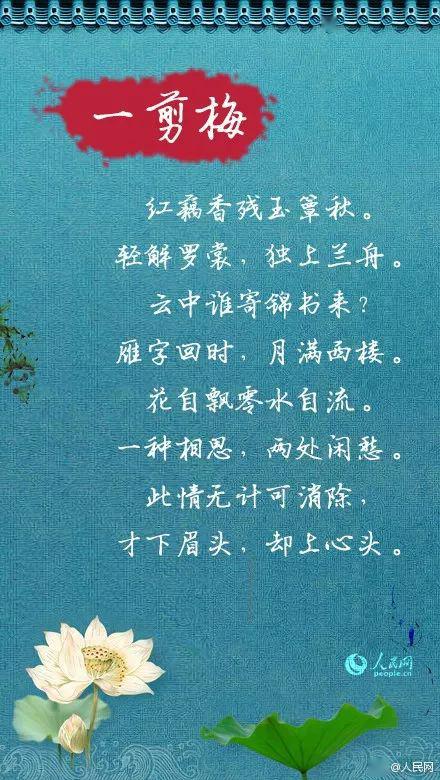 一剪梅
红藕香残玉簟秋。
轻解罗裳，独上兰舟。
云中谁寄锦书来？
雁字回时，月满西楼。
花自飘零水自流。
一种相思，两处闲愁。
此情无计可消除，
才下眉头，却上心头。
人民网
people.cn
@人民网